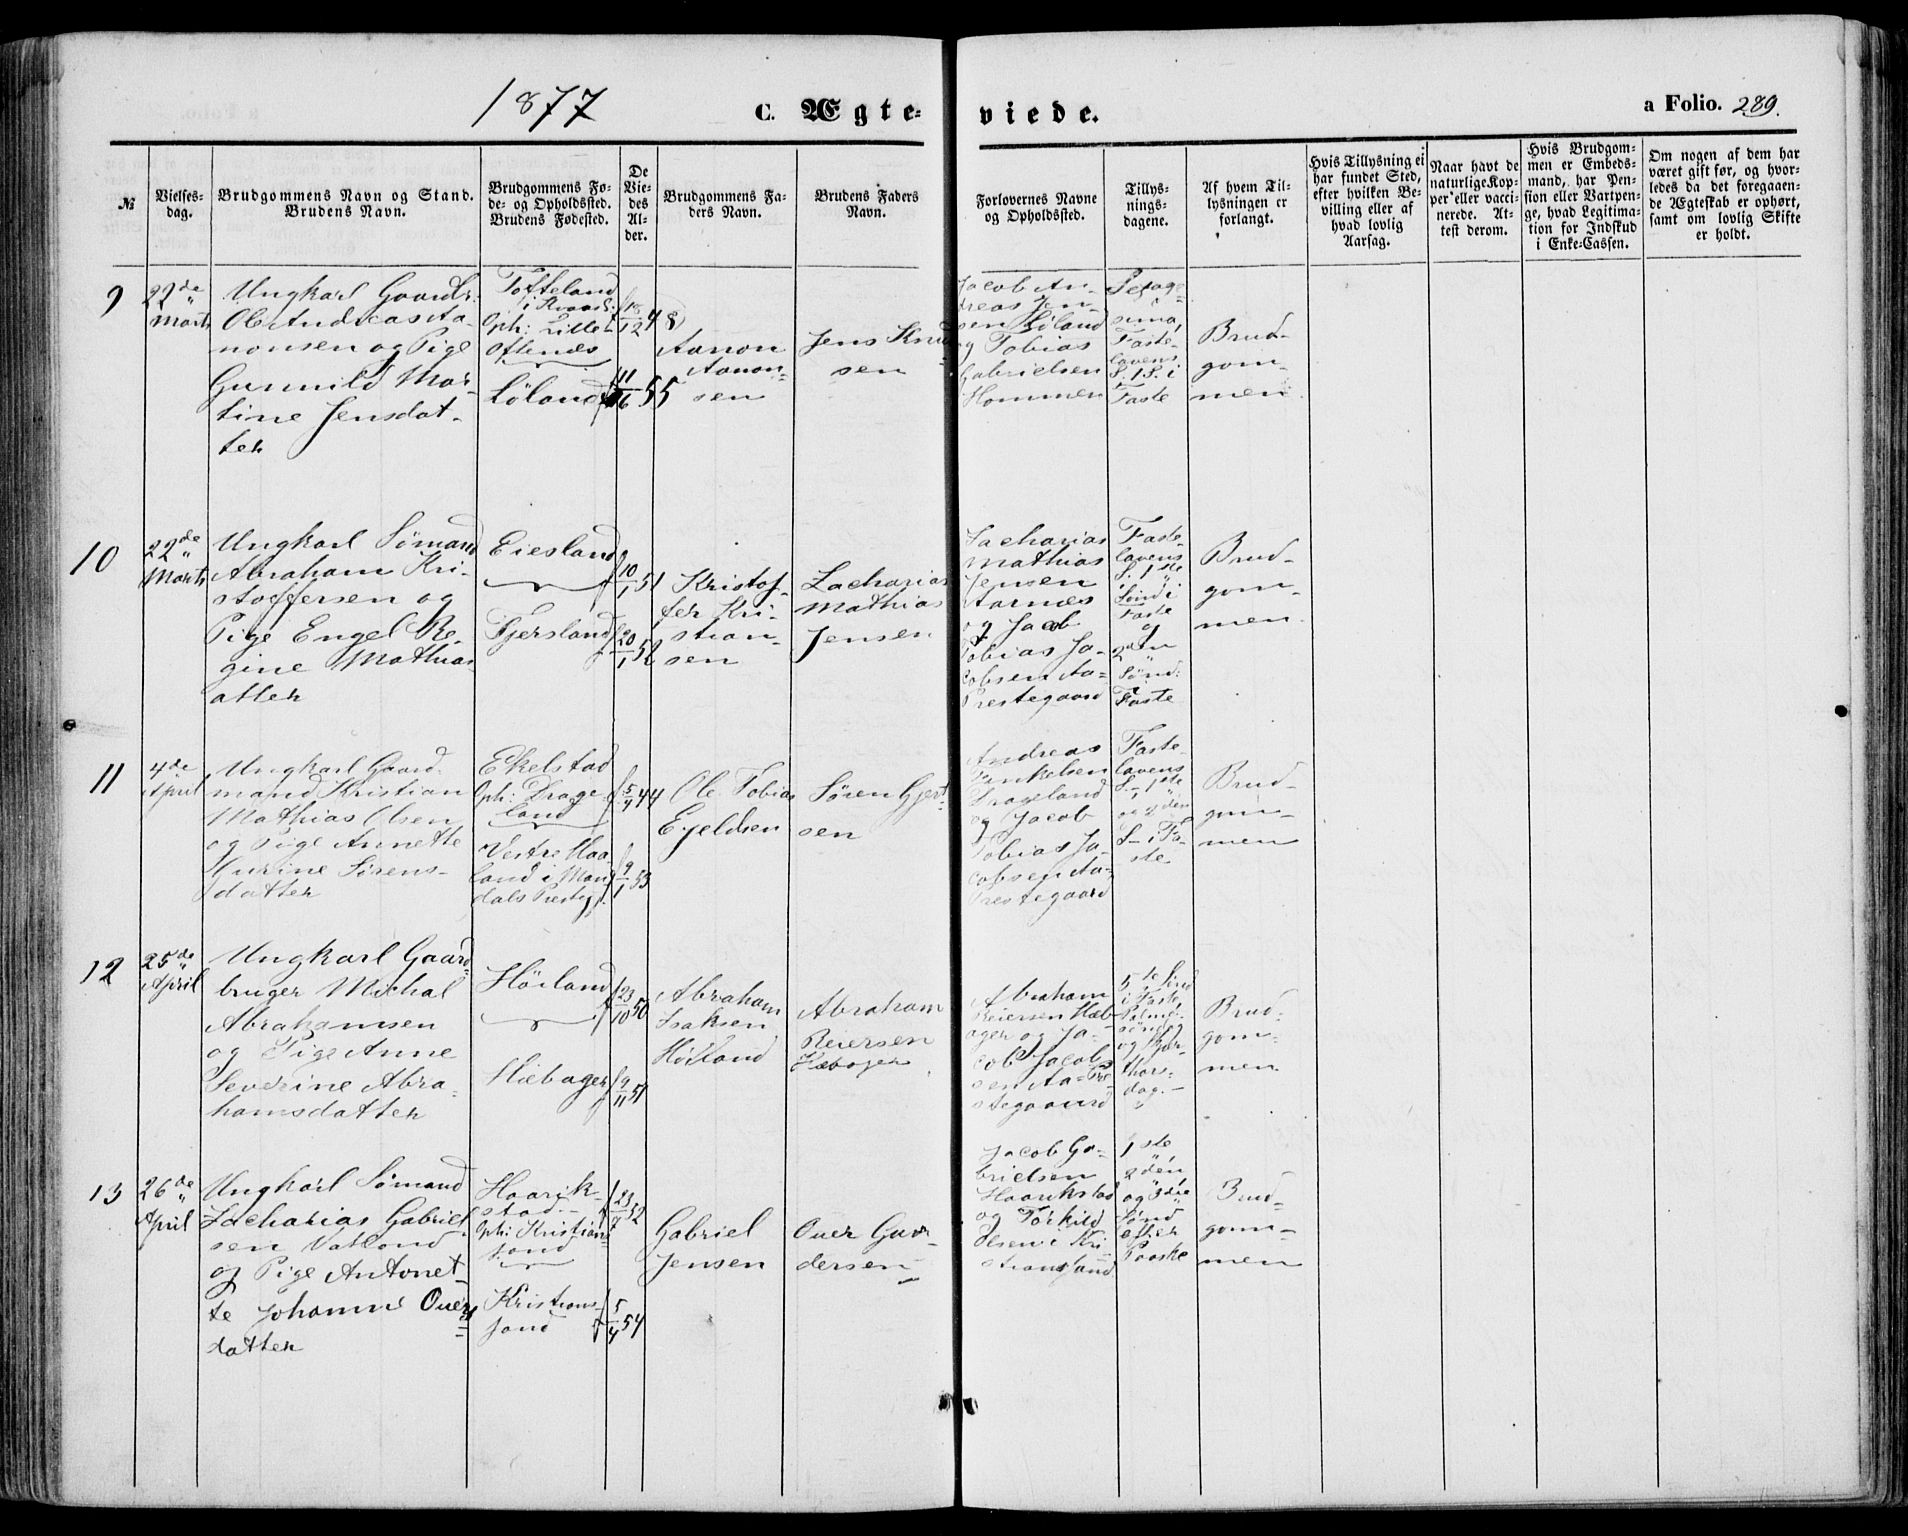 1877
C. Ægte-
viede.
a Folio. 289.
№
Vielses-
dag.
Brudgommens Navn og Stand.
Brudens Navn.
Brudgommens Fø-
de- og Opholdssted.
Brudens Fødested.
De
Vie-
des
Al-
der.
Brudgommens Fa-
ders Navn.
Brudens Faders
Navn.
Forlovernes Navne
og Opholdssted.
Tillys-
nings-
dagene.
Af hvem Til-
lysningen er
forlangt.
Hvis Tillysning ei
har fundet Sted,
efter hvilken Be-
villing eller af
hvad lovlig
Aarsag.
Naar havt de
naturlige Kop-
per eller vacci-
nerede. At-
test derom.
Hvis Brudgom-
men er Embeds-
mand, har Pen-
sion eller Vartpen-
ge, hvad Legitima-
tion for Indskud
i Enke-Cassen.
Om nogen af dem har
været gift før, og hvor-
ledes da det foregaaen-
de Ægteskab er ophørt,
samt om lovlig Skifte
er holdt.
9
22de
Marts
Ungkarl Gaardbr.
Ole Andreas Aa-
nonsen og Pige
Gunnild Mar-
tine Jensdat-
ter
Tofteland
Oph: Lille-
Oftenes
Løland
18/12 48
11/6 55
Aanon
Aanon-
sen
Jens Knud
sen
Jacob An-
dreas Jen-
sen Løland
og Tobias
Gabrielsen
Hommen
Sexage-
sima,
Faste-
lavens
S. 1 S. i
Faste
Brud-
gom-
men.
10
22de
Marts
Ungkarl Sømand
Abraham Kri-
stoffersen og
Pige Engel Re-
gine Mathias
atter
Eiesland
Fjersland
10/1 51
20/1 52
Kristof-
fer Kri-
stian-
sen
Zacharias
Mathias
Jensen
Zacharias
Mathias
Jensen
Aarnes
og Jacob
Tobias Ja-
cobsen Aa-
Prestegaard
Faste-
lavens
S. 1ste
Sønd i
Faste
og
2den
Sønd:
Faste
Brud-
gom-
men.
11
4de
April
Ungkarl Gaard-
mand Kristian
Mathias Olsen
og Pige Annette
Sørens-
datter
Ekelstad
Oph: Drage-
land
Vestre Haa-
land i Man-
dals Prestgj.
5/4 44
9/1 53
Ole Tobias
Ejeldsen
Søren Gjert-
sen
Andreas
Drageland
og Jacob
Tobias Ja-
cobsen Aa-
Prestegaard
Faste-
lavens
S- 1ste
og 2den
S- i Fa-
ste
Brud-
gom-
men
12
25de
April
Ungkarl Gaard-
bruger Michal
Abrahamsen
og Pige Anne
Severine Abra-
hamsdatter
Höiland
Hæbager
23/10 50
9/11 51
Abraham
Isaksen
Höiland
Abraham
Reiersen
Hæbager
Abraham
Reiersen Hæb-
ager og Ja-
cob Jacob-
sen Aa-Pre-
stegaard
5te Sønd
i Faste,
Palme-
sønd
og Skjær-
thors-
dag.-
Brud-
gom-
men.
13
26de
April
Ungkarl Sømand
Zacharias Gabriel-
sen Vatland
og Pige Antonet-
te Johanne Ouers
datter
Haarik-
stad-
Oph: Kristian-
sand
Kristians-
sand
23/7 52
5/4 54
Gabriel
Jensen
Ouer Gun-
dersen
Jacob Ga-
brielsen
Haarikstad
og Torkild
Olsen i Kri-
stiansand
1ste
2den,
og 3die
Sønd
efter
Paaske
Brud-
gom-
men